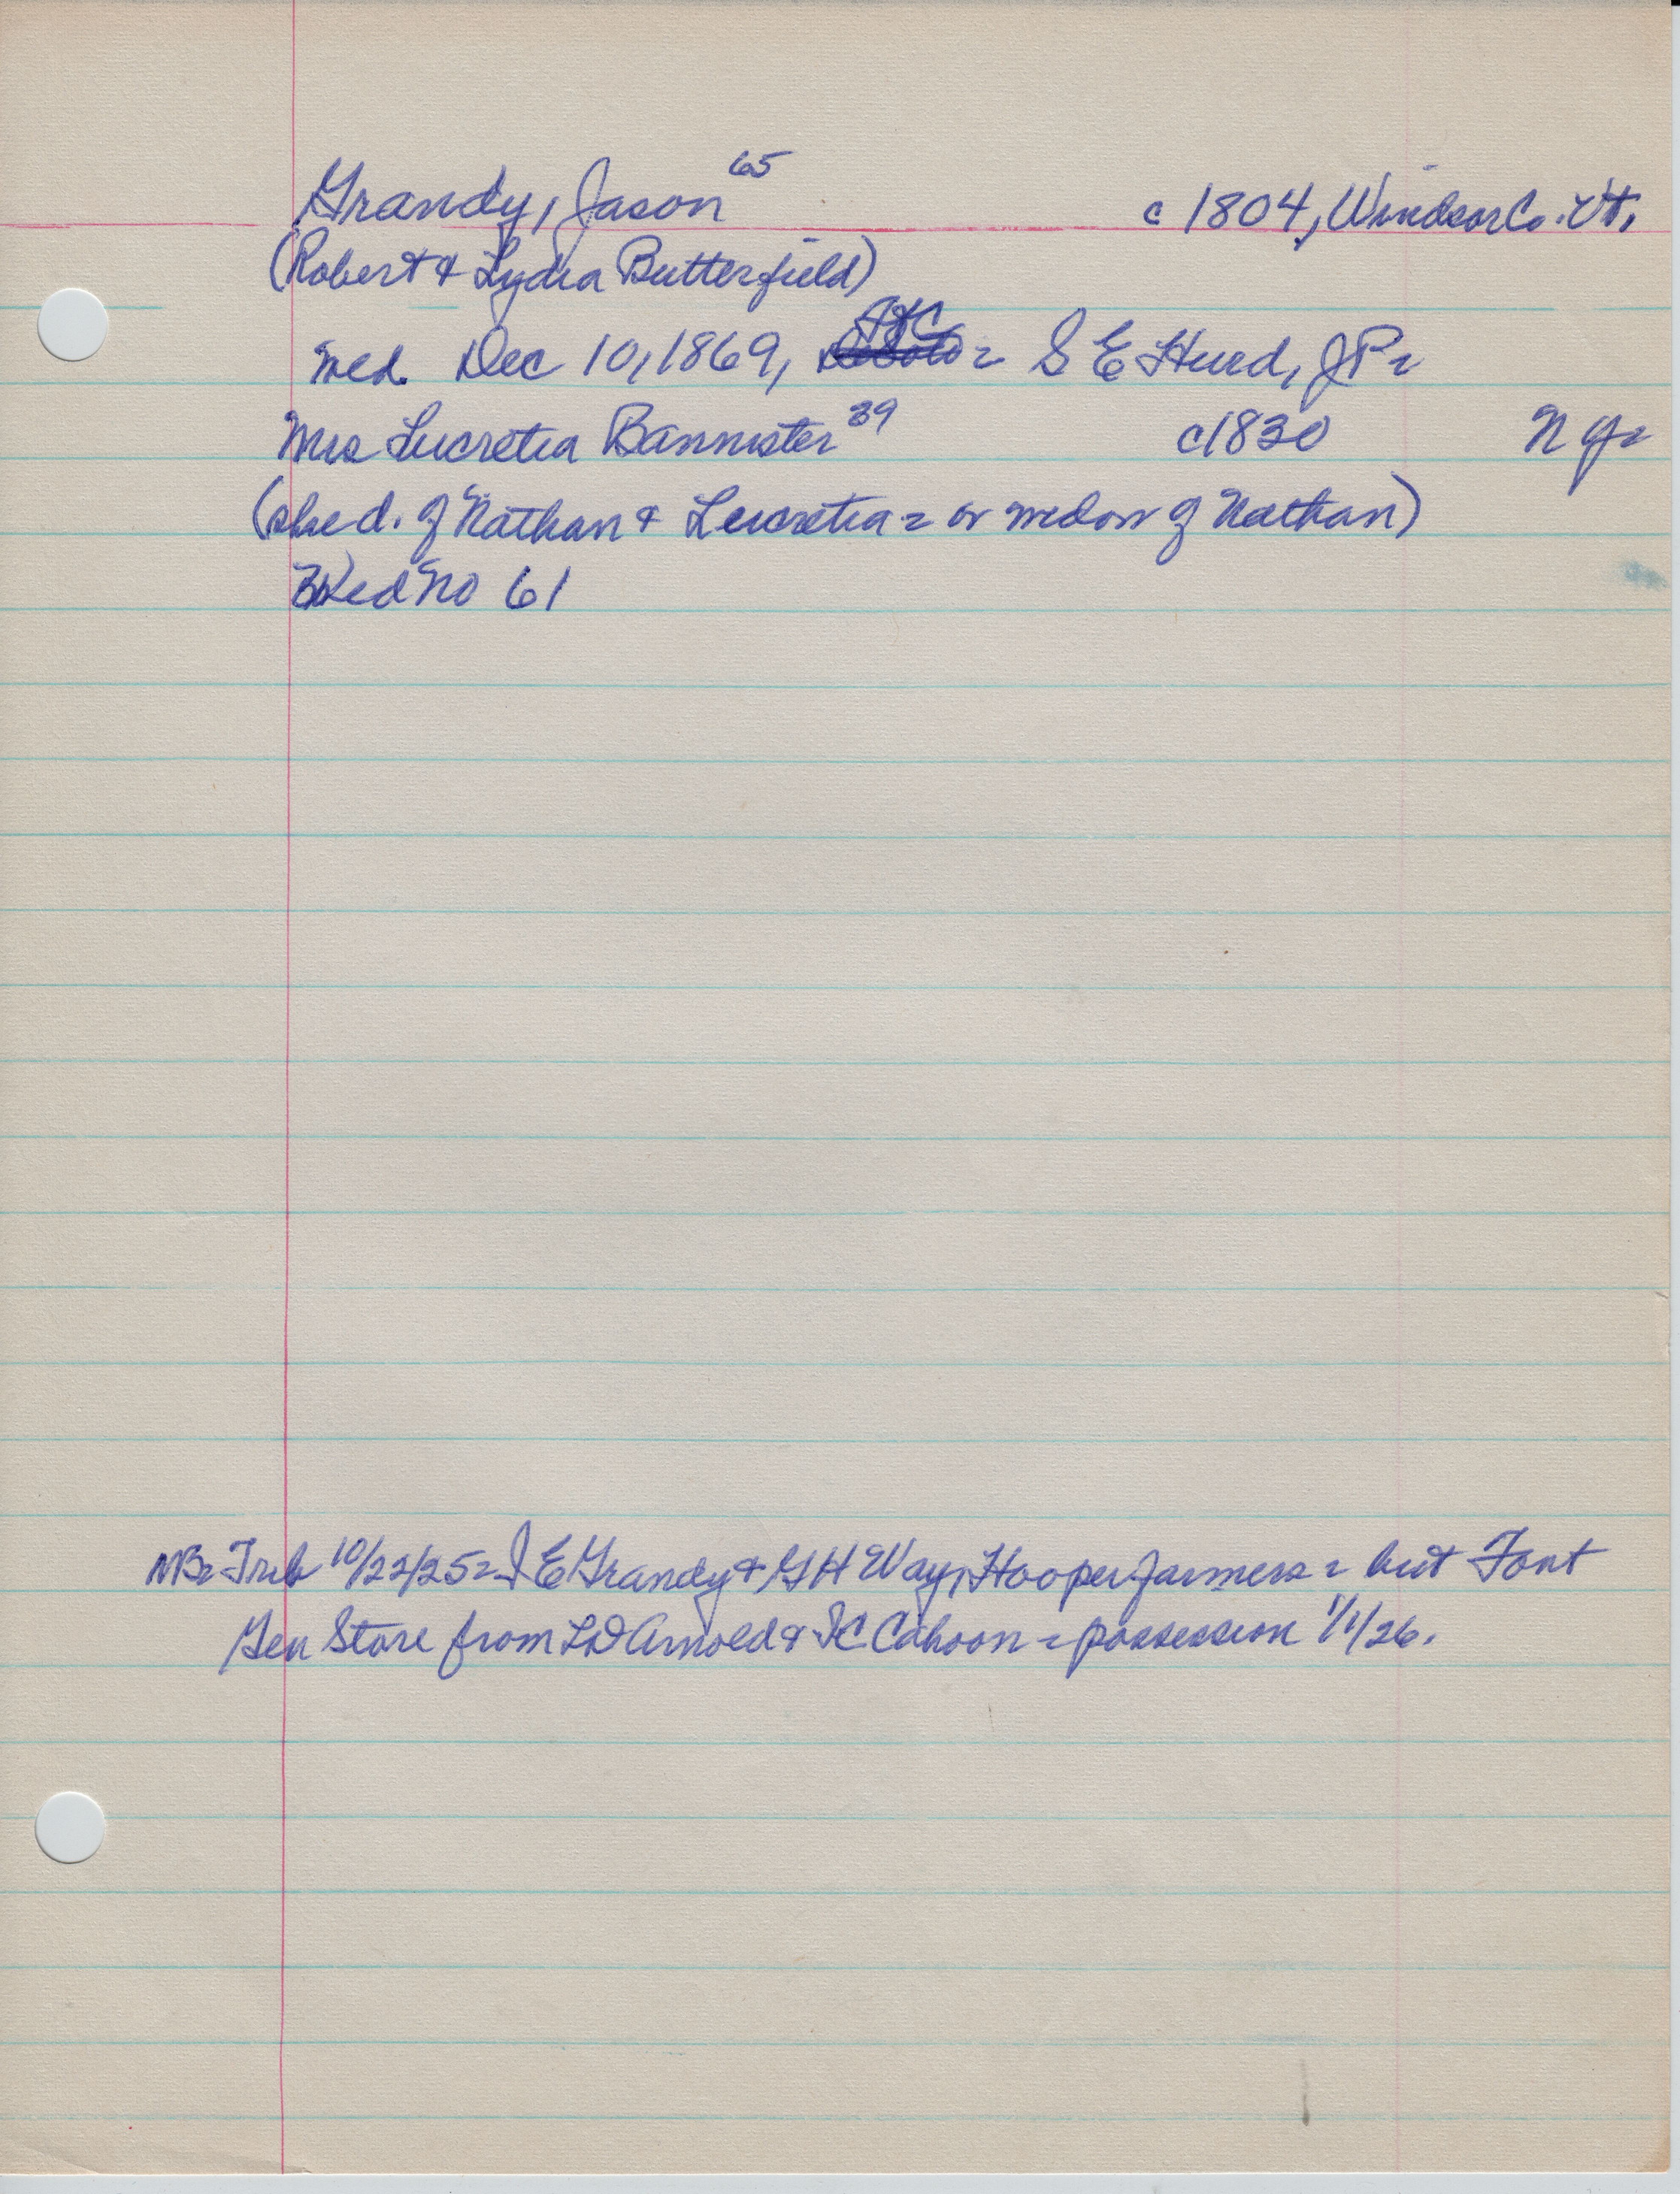 Grandy, Jason 65 c 1804, Windsor Co. Vt.
(Robert & Lydia Butterfield)
Wed. Dec 10, 1869, = S E Hurd, JP=
Mrs Lucretia Bannister 39 c1830 N Y=
(she d. of Nathan & Lucretia = or widow of Nathan)
Wed No 61
NB= Trib 10/22/25 = J E Grandy & G H Way, Hooper farmers = but Font
Gen Store from L D Arnold & I C Cahoon = possession 1/1/26.